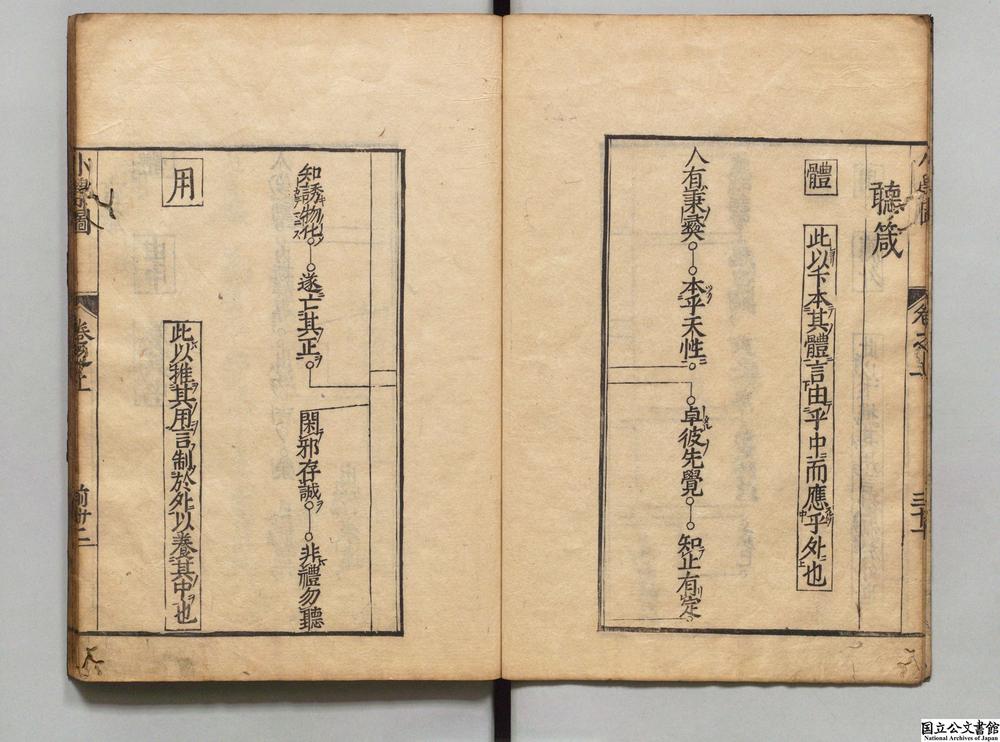 聽箴
體
此以下本其體言由乎中而應乎外也
人有秉彝
本乎天性
卓彼先覺
知止有定
知誘物化
遂亡其正
閑邪存誠
非禮勿聽
用
此以推其用言制於外以養其中也
小學圖
卷之上
国立公文書館
National Archives of Japan